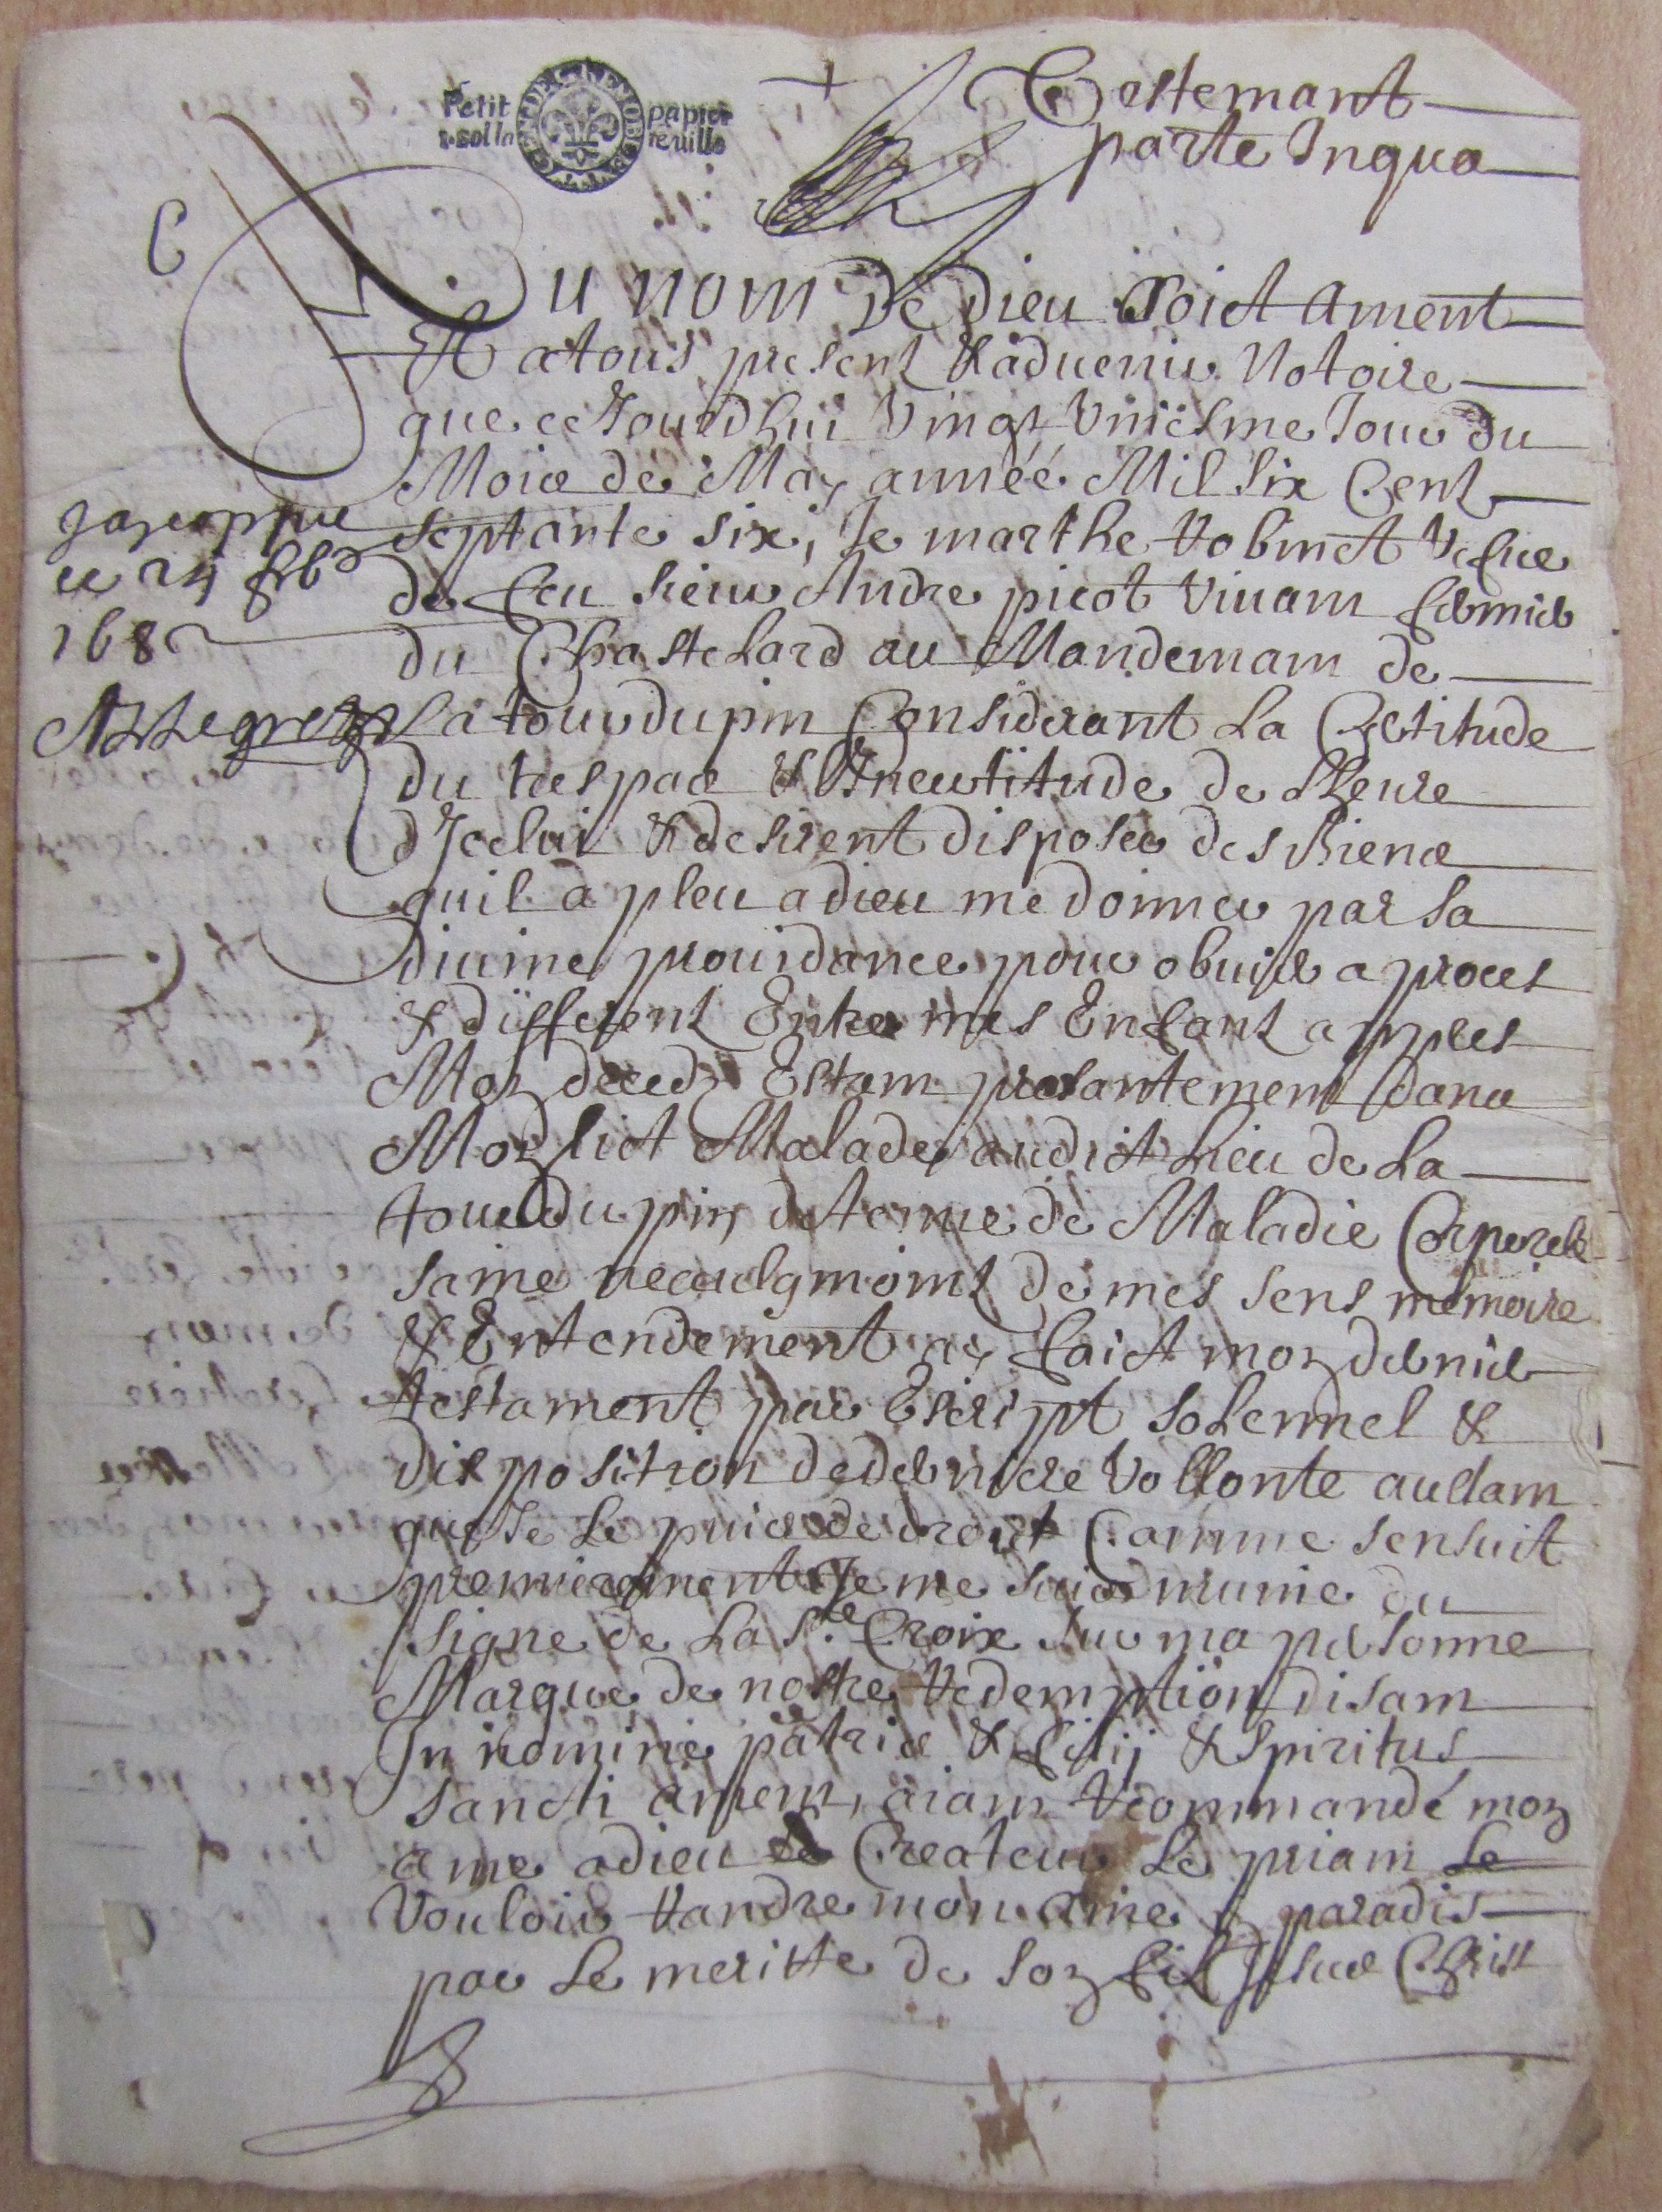 Petit papier
1 sol la feuille
Testemant
parte In qua
Au nom de Dieu soict ament
Et a tous present & aduenir Notoire
que ce Jourdhui Vingt Vniesme Jour du
Mois de May année Mil six Cent
septante six, Je marthe Robinet Vefue
de feu sieur Andre picot Viuam fermier
du Chastelard au Mandemam de
La tour du pin Considerant La Certitude
du trespas & Incertitude de Lheure
d'Jcelui & desirent disposer des Biens
quil a pleu a dieu me donner par sa
diuine prouidance pour obuier a proces
& different Entre mes Enfant apres
Moy deceds Estam presantement dans
Mon lict Malade audict Lieu de La
tour du pin detenue de Maladie Corporelle
saine neaulgmoint de mes sens memoire
& Entendement ay faict mon dernier
testament par Escript solennel &
disposition de derniere Vollonte aultam
que Je Le puis de droict Comme sensuit
premierement Je me suis munie du
signe de La Ste Croix sur ma personne
Marque de nostre Redemption disam
In nomine patris & filij & spiritus
sancti amem, aiam Recommandé mon
ame a dieu Le Createur Le priam Le
Vouloir Randre mon ame en paradis
par Le meritte de son fils Jesus Christ
C
1682